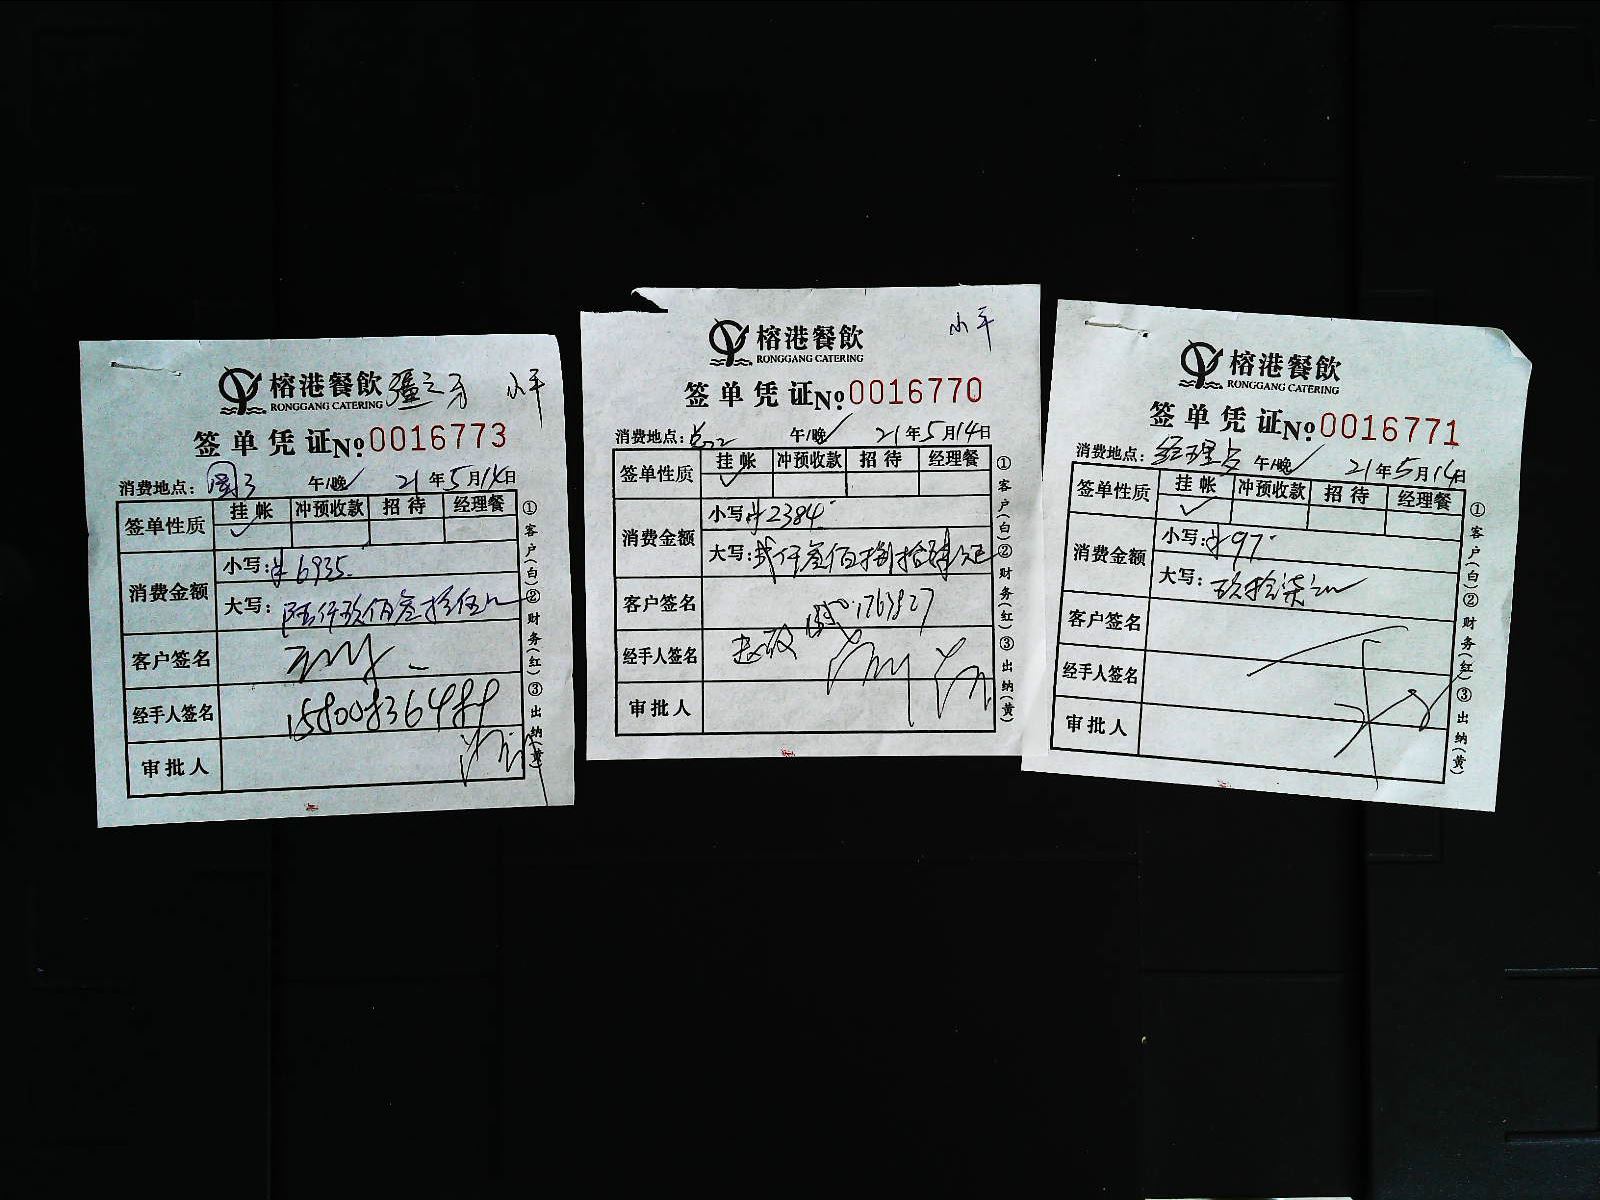 榕港餐飲 小平
RONGGANG CATERING
签单凭证 No 0016773
消费地点: 午/晚 21年5月14日
签单性质 挂帐 冲预收款 招待 经理餐
消费金额 小写: ¥6935.
大写: 陆仟玖佰叁拾伍元
客户签名
经手人签名
审批人
①客户(白)②财务(红)③出纳(黄)
榕港餐飲 小平
RONGGANG CATERING
签单凭证 No 0016770
消费地点: 午/晚 21年5月14日
签单性质 挂帐 冲预收款 招待 经理餐
消费金额 小写: ¥2384.
大写: 贰仟叁佰捌拾肆元
客户签名
经手人签名
审批人
①客户(白)②财务(红)③出纳(黄)
榕港餐飲
RONGGANG CATERING
签单凭证 No 0016771
消费地点: 午/晚 21年5月14日
签单性质 挂帐 冲预收款 招待 经理餐
消费金额 小写: ¥97.
大写: 玖拾柒元
客户签名
经手人签名
审批人
①客户(白)②财务(红)③出纳(黄)